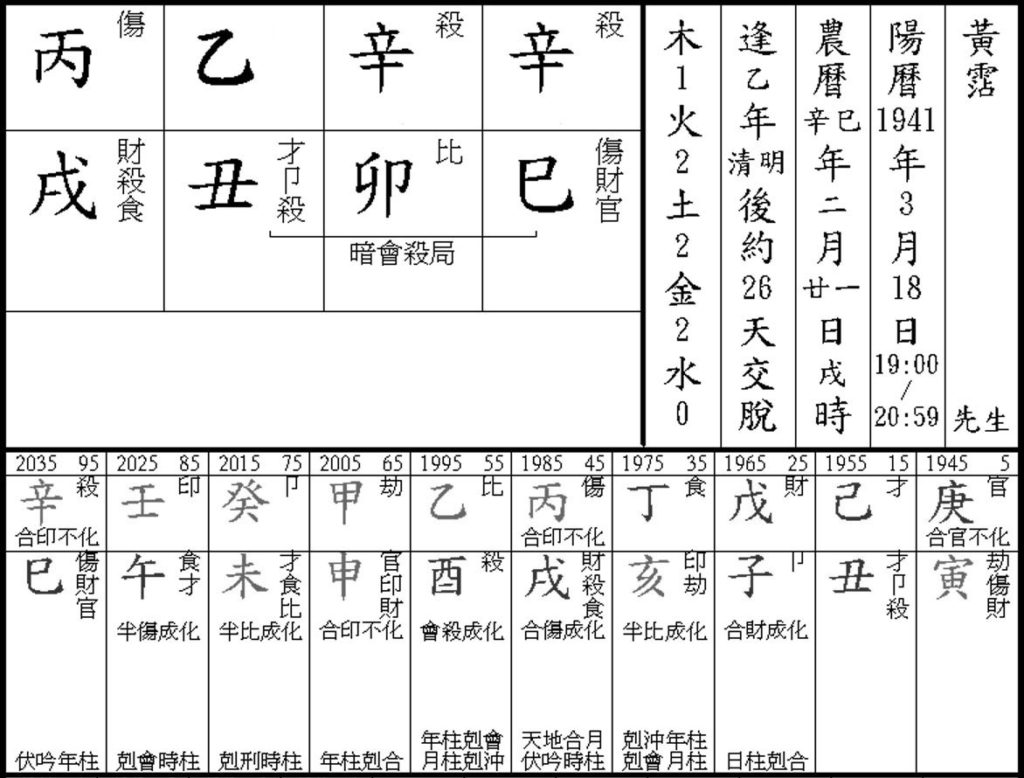 黃霑 先生
陽曆1941年3月18日19:00/20:59
農曆辛巳年二月廿一日戌時
逢乙年清明後約26天交脫
木1火2土2金2水0
殺 辛
殺 辛
乙
傷 丙
巳 傷財官
卯 比
丑 才卩殺
戌 財殺食
暗會殺局
2035 95
2025 85
2015 75
2005 65
1995 55
1985 45
1975 35
1965 25
1955 15
1945 5
辛 殺
合印不化
壬 印
癸 卩
甲 劫
乙 比
丙 傷
合印不化
丁 食
戊 財
己 才
庚 官
合官不化
巳 傷財官
午 食才
半傷成化
未 才食比
半比成化
申 官印財
合印不化
酉 殺
會殺成化
戌 財殺食
合傷成化
亥 印劫
半比成化
子 卩
合財成化
丑 才卩殺
寅 劫傷財
伏吟年柱
剋會時柱
剋刑時柱
年柱剋合
年柱剋會
月柱剋沖
天地合月
伏吟時柱
剋沖年柱
剋會月柱
日柱剋合